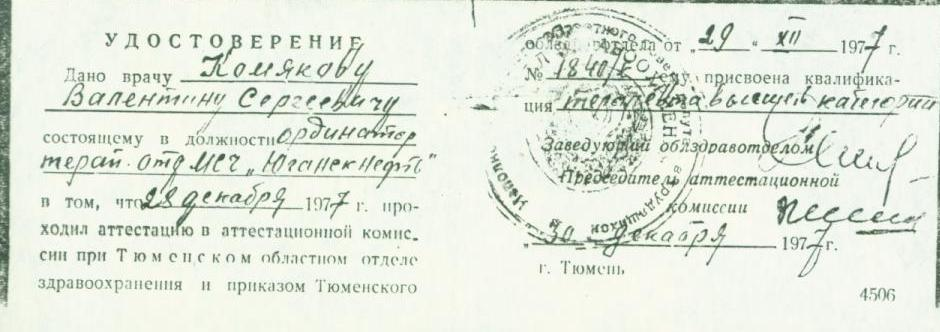 УДОСТОВЕРЕНИЕ
Дано врачу Комякову
Валентину Сергеевичу
состоящему в должности ординатор
терап. отд МСЧ „Юганскнефть"
в том, что 28 декабря 1977 г. про-
ходил аттестацию в аттестационной комис-
сии при Тюменском областном отделе
здравоохранения и приказом Тюменского
облздравотдела от „29" XII 1977 г.
№ 1840/к ему присвоена квалифика-
ция терапевта высшей категории
Заведующий облздравотделом
Председатель аттестационной
комиссии
„30" декабря 1977 г.
г. Тюмень
4506